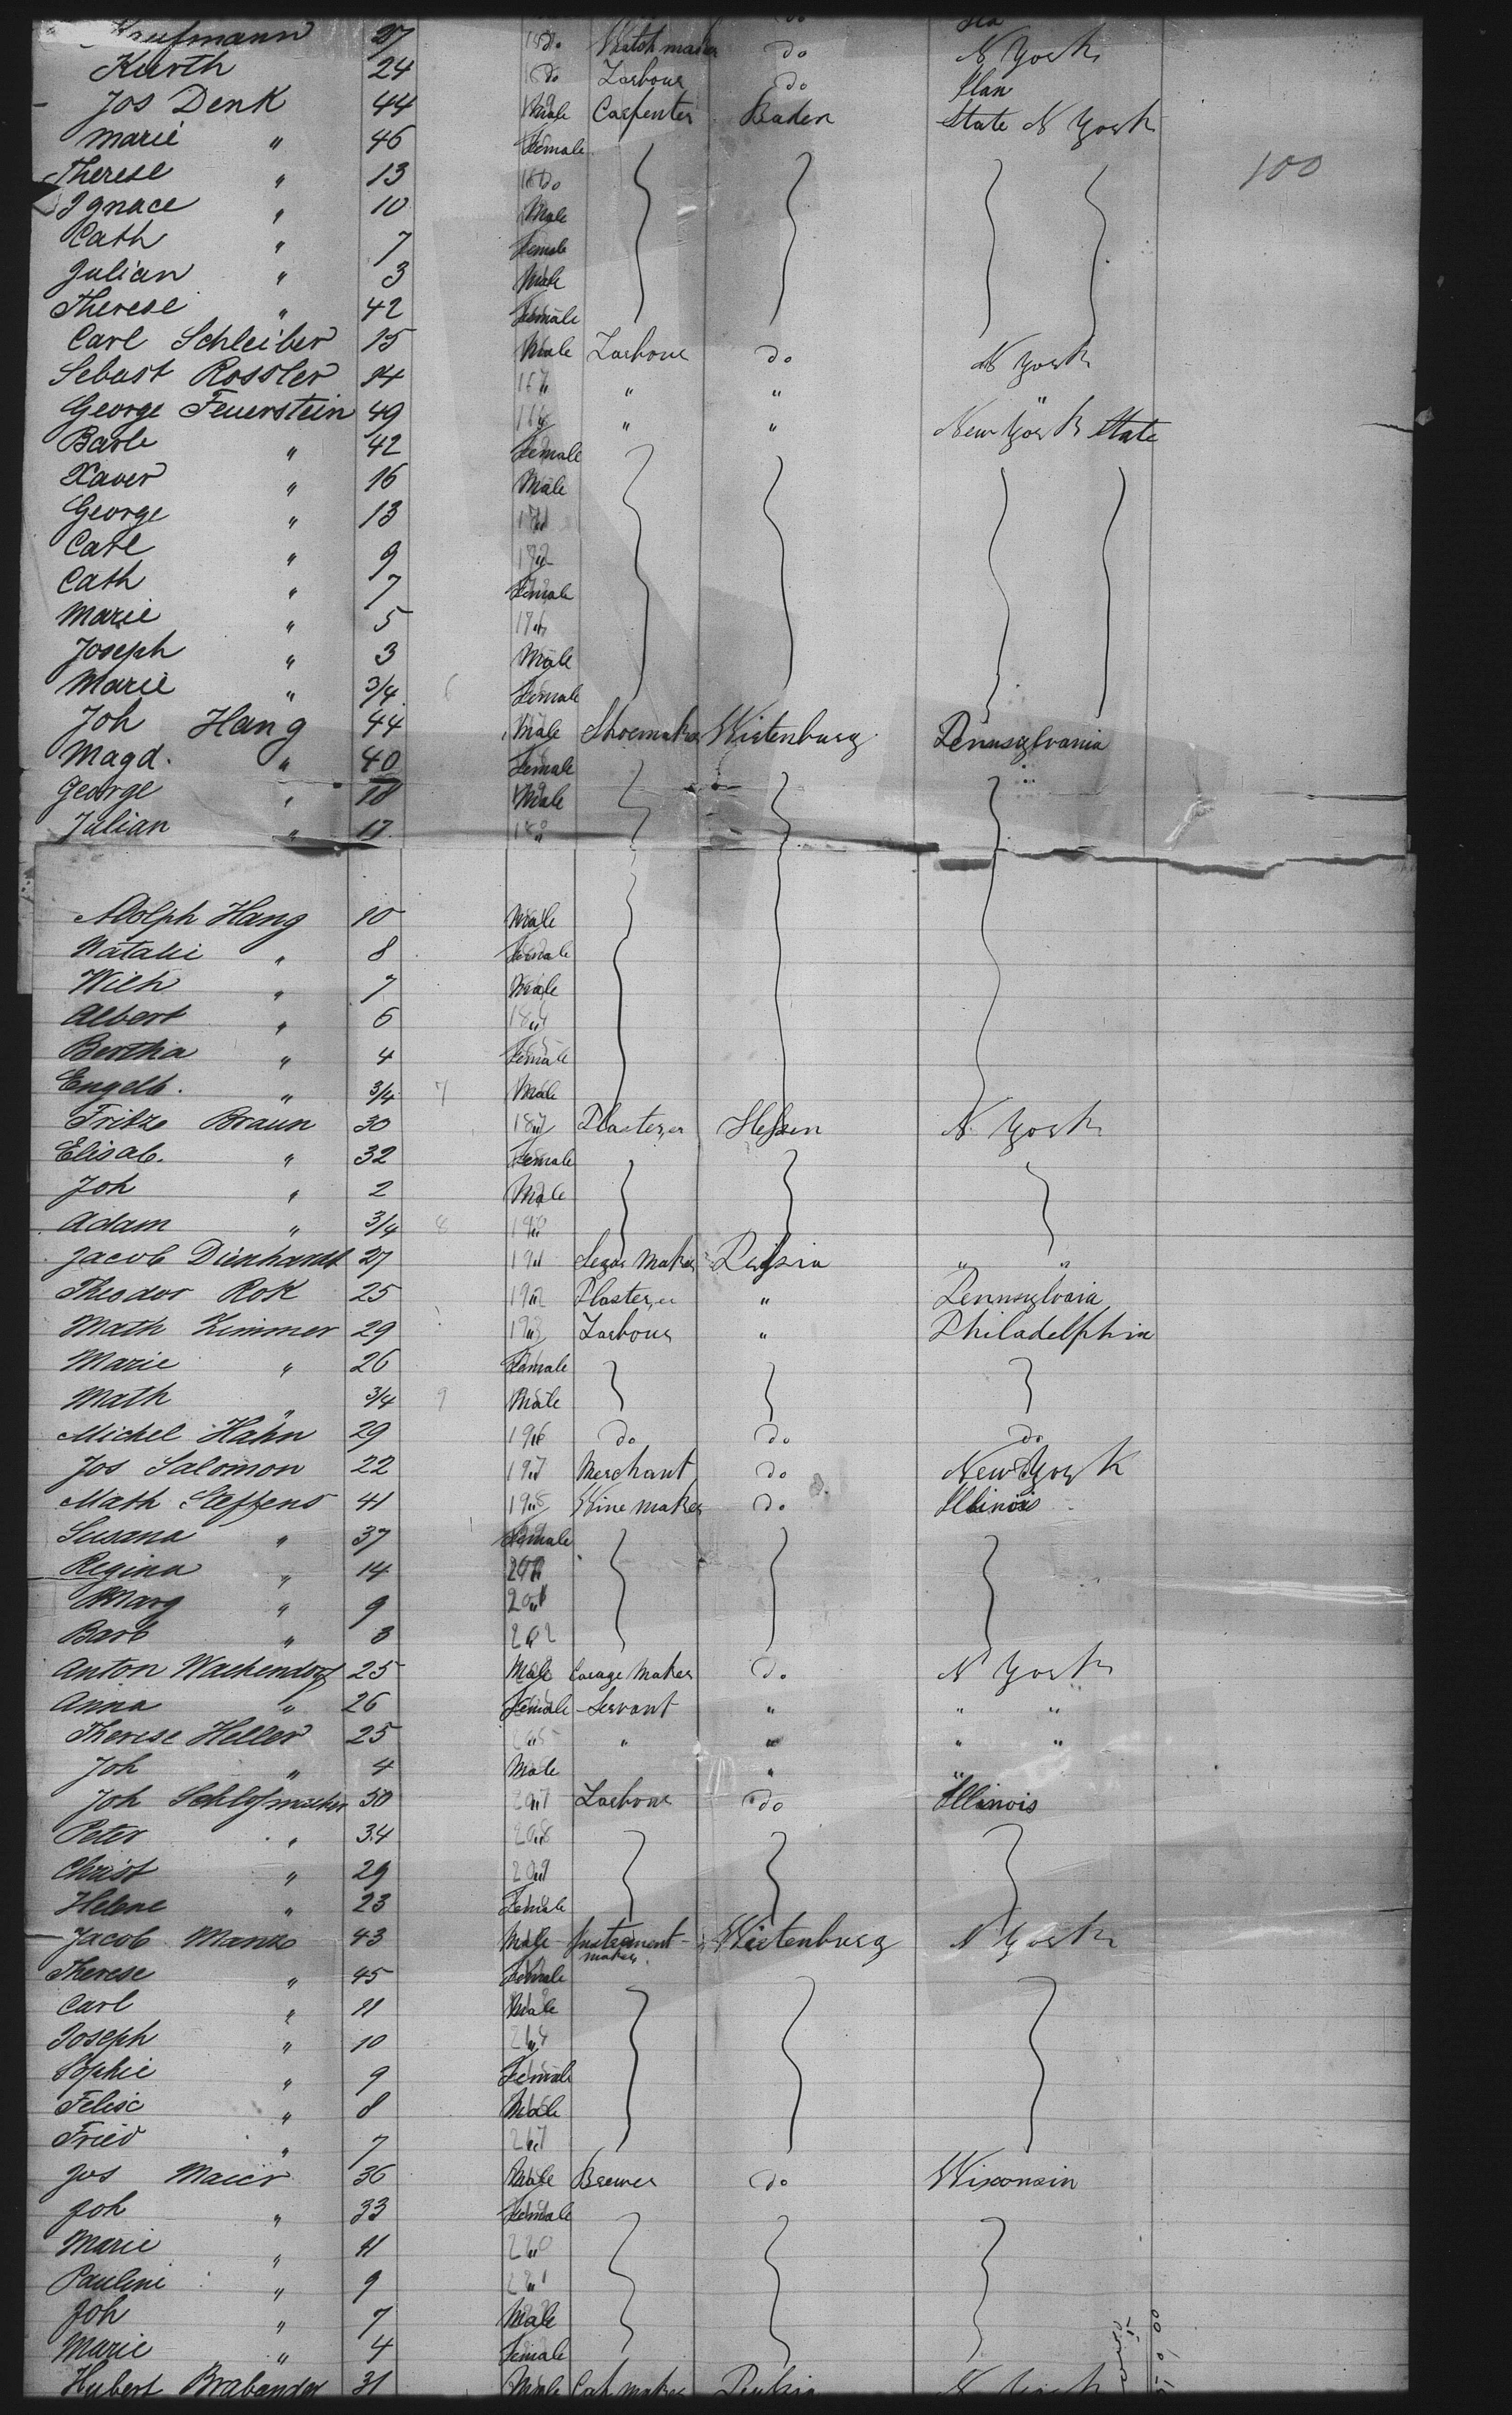 Kaufmann 27 do Watch maker do N York
Kurth 24 do Larbour do
Jos Denk 44 Male Carpenter Baden State N York
Marie " 46 Female
Therese " 13 do 100
Ignace " 10 Male
Cath " 7 Female
Julian " 3 Male
Therese " 42 Female
Carl Schleiber 15 Male Larbour do N York
Sebast Rossler 14 " " " "
George Feuerstein 49 " " " New York State
Barb " 42 Female
Xaver " 16 Male
George " 13 "
Carl " 9 "
Cath " 7 Female
Marie " 5 "
Joseph " 3 Male
Marie " 3/4 6 Female
Joh Hang 44 Male Shoemaker Wirtenburg Pennsylvania
Magd. " 40 Female
George " 18 Male
Julian " 17 "
Adolph Hang 10 Male
Natalie " 8 Female
Wilh " 7 Male
Albert " 6 184 "
Bertha " 4 Female
Engelb. " 3/4 7 Male
Fritz Braun 30 187 " Plasterer Hessen N York
Elisab. " 32 Female
Joh " 2 Male
Adam " 3/4 8 190 "
Jacob Dienhardt 27 191 " Segar Maker " "
Theodor Rok 25 192 " Plasterer " Pennsylvania
Math Zimmer 29 193 " Larbour " Philadelphia
Marie " 26 Female
Math " 3/4 9 Male
Michel Hahn 29 196 " do do do
Jos Salomon 22 197 " Merchant do New York
Math Steffens 41 198 " Wine maker do Illinois
Susana " 37 Female
Regina " 14 200 "
Marg " 9 201 "
Barb " 3 202 "
Anton Wachendorf 25 Male Carage Maker do N York
Anna " 26 Female Servant " " "
Therese Heller 25 " " " " "
Joh " 4 Male " "
Joh 50 207 " Larbour do Illinois
Peter " 34 208 "
Christ " 29 209 "
Helene " 23 Female
Jacob Manz 43 Male Instrument maker Wirtenburg N York
Therese " 45 Female
Carl " 11 Male
Joseph " 10 214 "
Sophie " 9 Female
Felix " 8 Male
Fried " 7 217 "
Jos Maier 36 Male Brewer do Wisconsin
Joh " 33 Female
Marie " 11 220 "
Pauline " 9 221 "
Joh " 7 Male
Marie " 4 Female
Hubert Brabander 31 Male N York